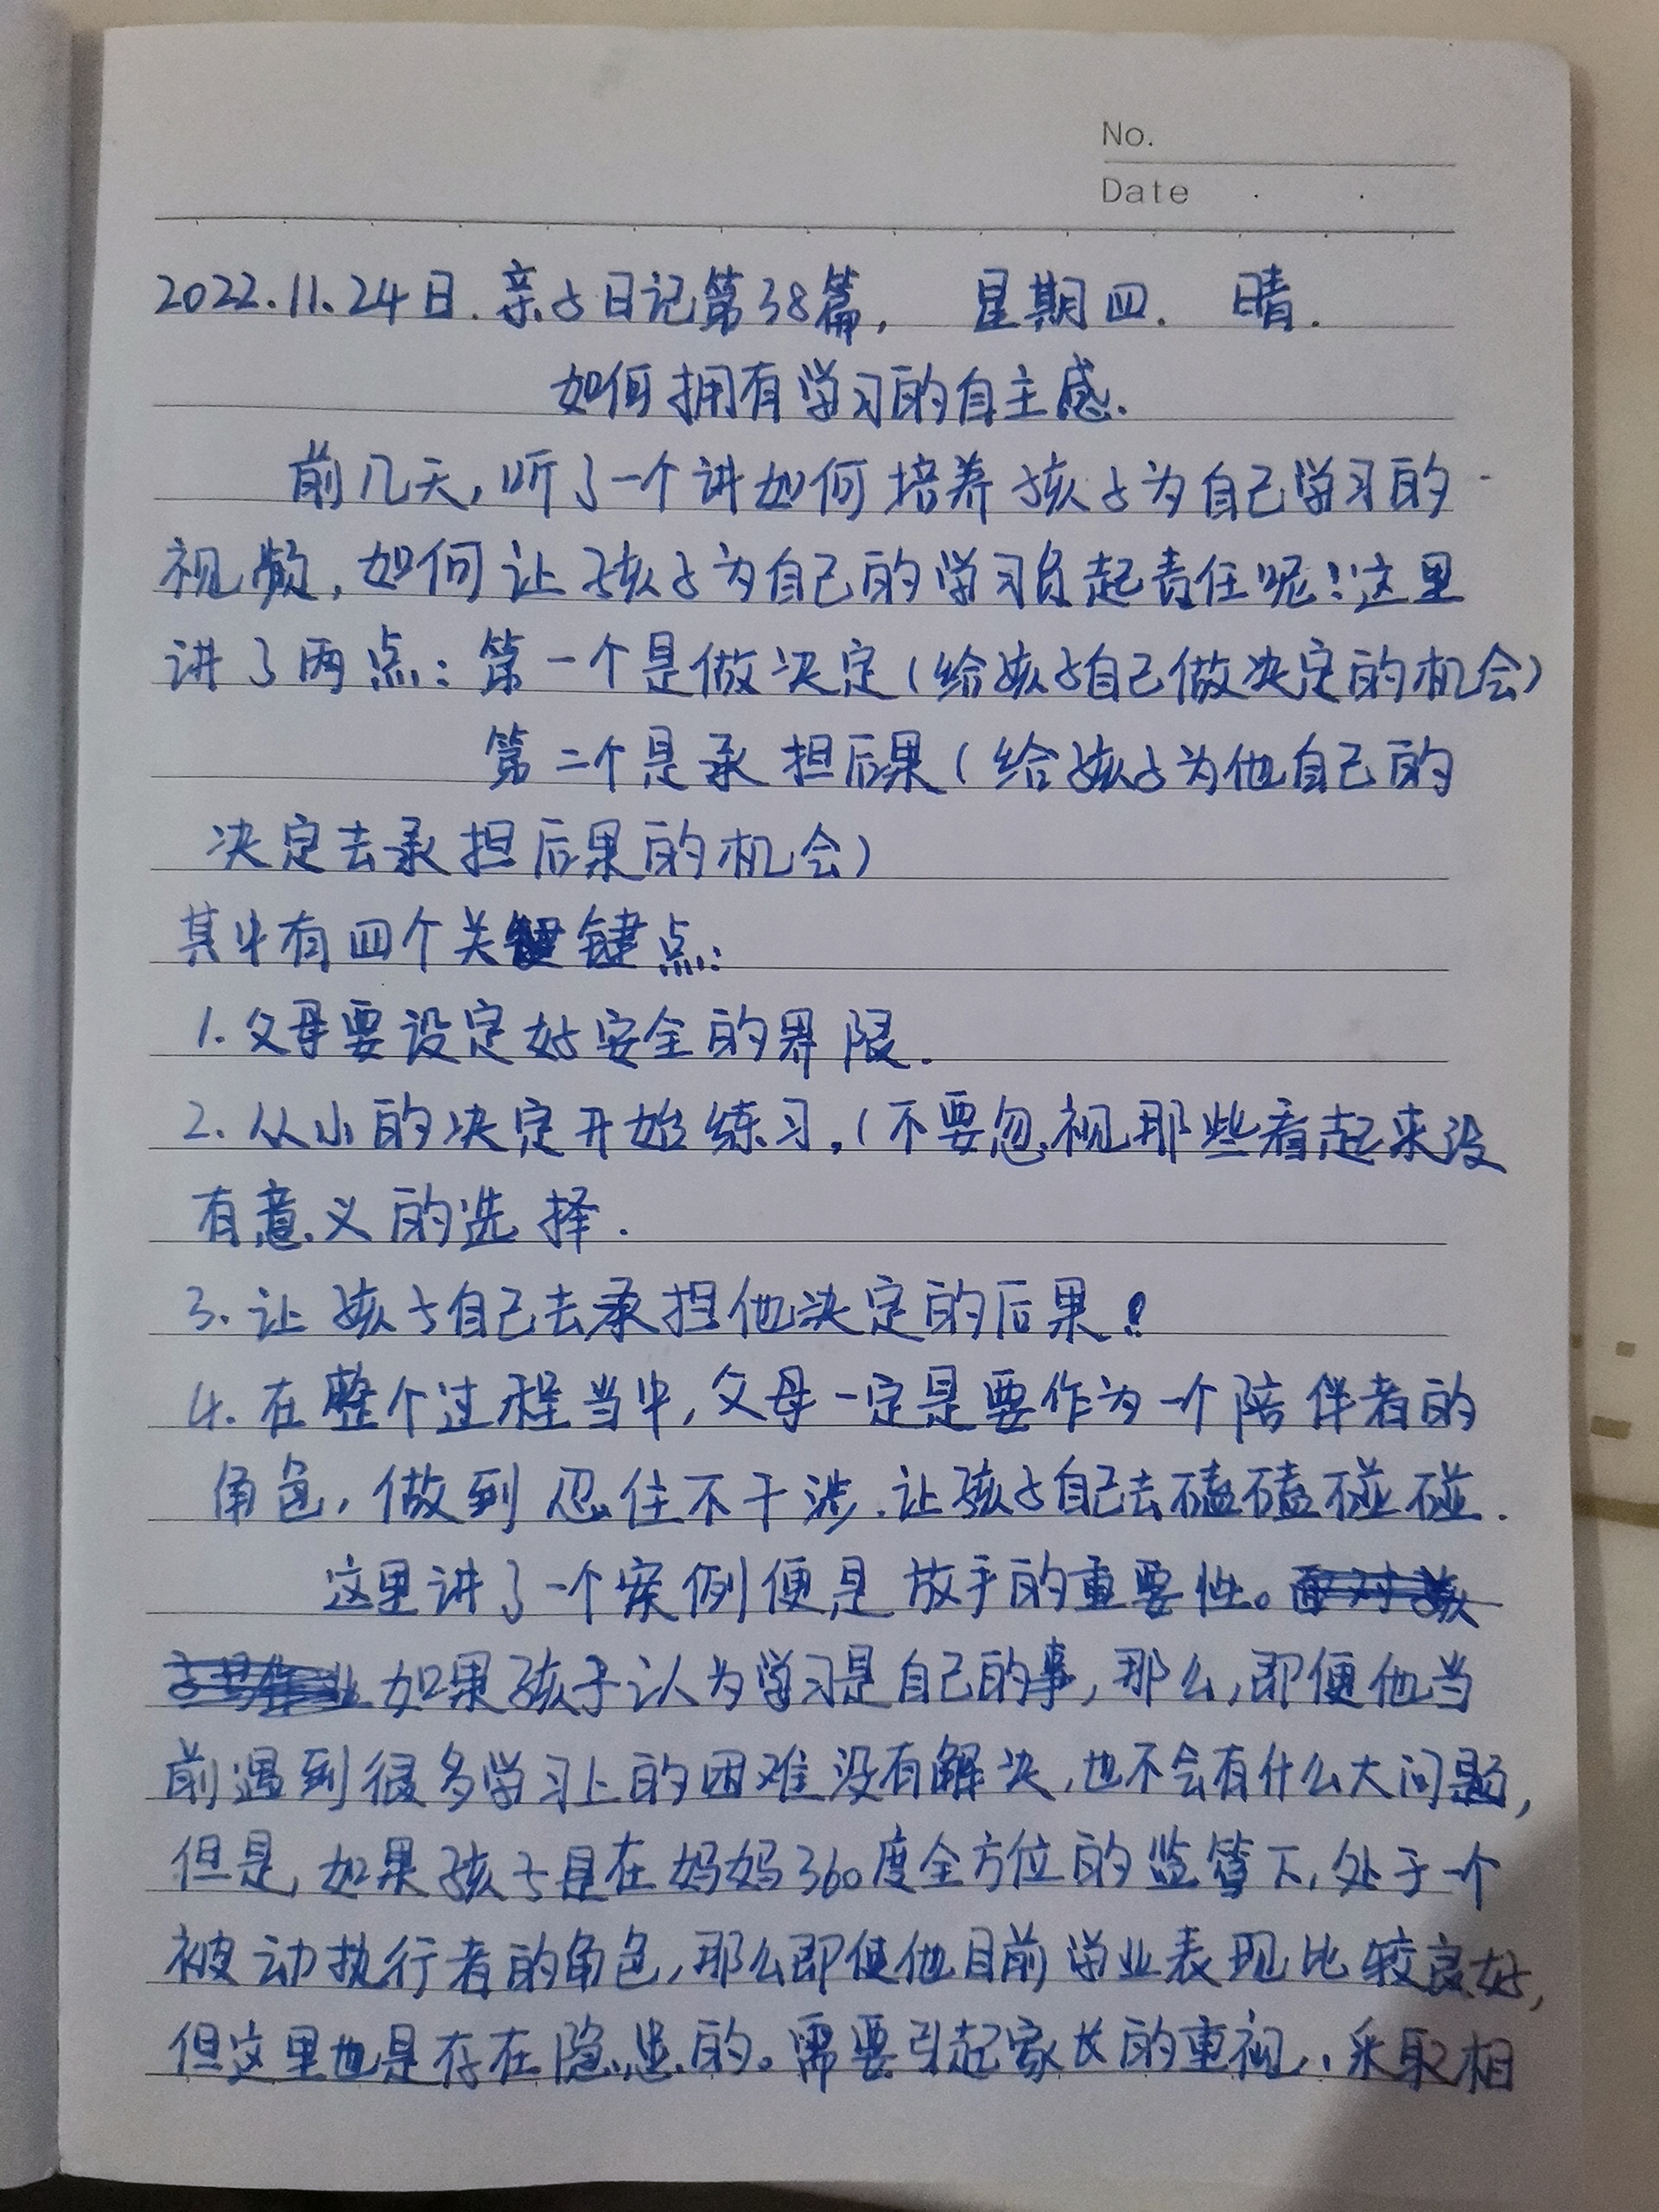 No.
Date
2022.11.24日.亲子日记第38篇, 星期四. 晴.
如何拥有学习的自主感.
前几天,听了一个讲如何培养孩子为自己学习的
视频,如何让孩子为自己的学习负起责任呢!这里
讲了两点:第一个是做决定(给孩子自己做决定的机会)
第二个是承担后果(给孩子为他自己的
决定去承担后果的机会)
其中有四个关键点:
1.父母要设定好安全的界限.
2.从小的决定开始练习,(不要忽视那些看起来没
有意义的选择.
3.让孩子自己去承担他决定的后果!
4.在整个过程当中,父母一定是要作为一个陪伴者的
角色,做到忍住不干涉.让孩子自己去磕磕碰碰.
这里讲了一个案例便是放手的重要性。
如果孩子认为学习是自己的事,那么,即便他当
前遇到很多学习上的困难没有解决,也不会有什么大问题,
但是,如果孩子是在妈妈360度全方位的监管下,处于一个
被动执行者的角色,那么即便他目前学业表现比较良好,
但这里也是存在隐患的。需要引起家长的重视,采取相